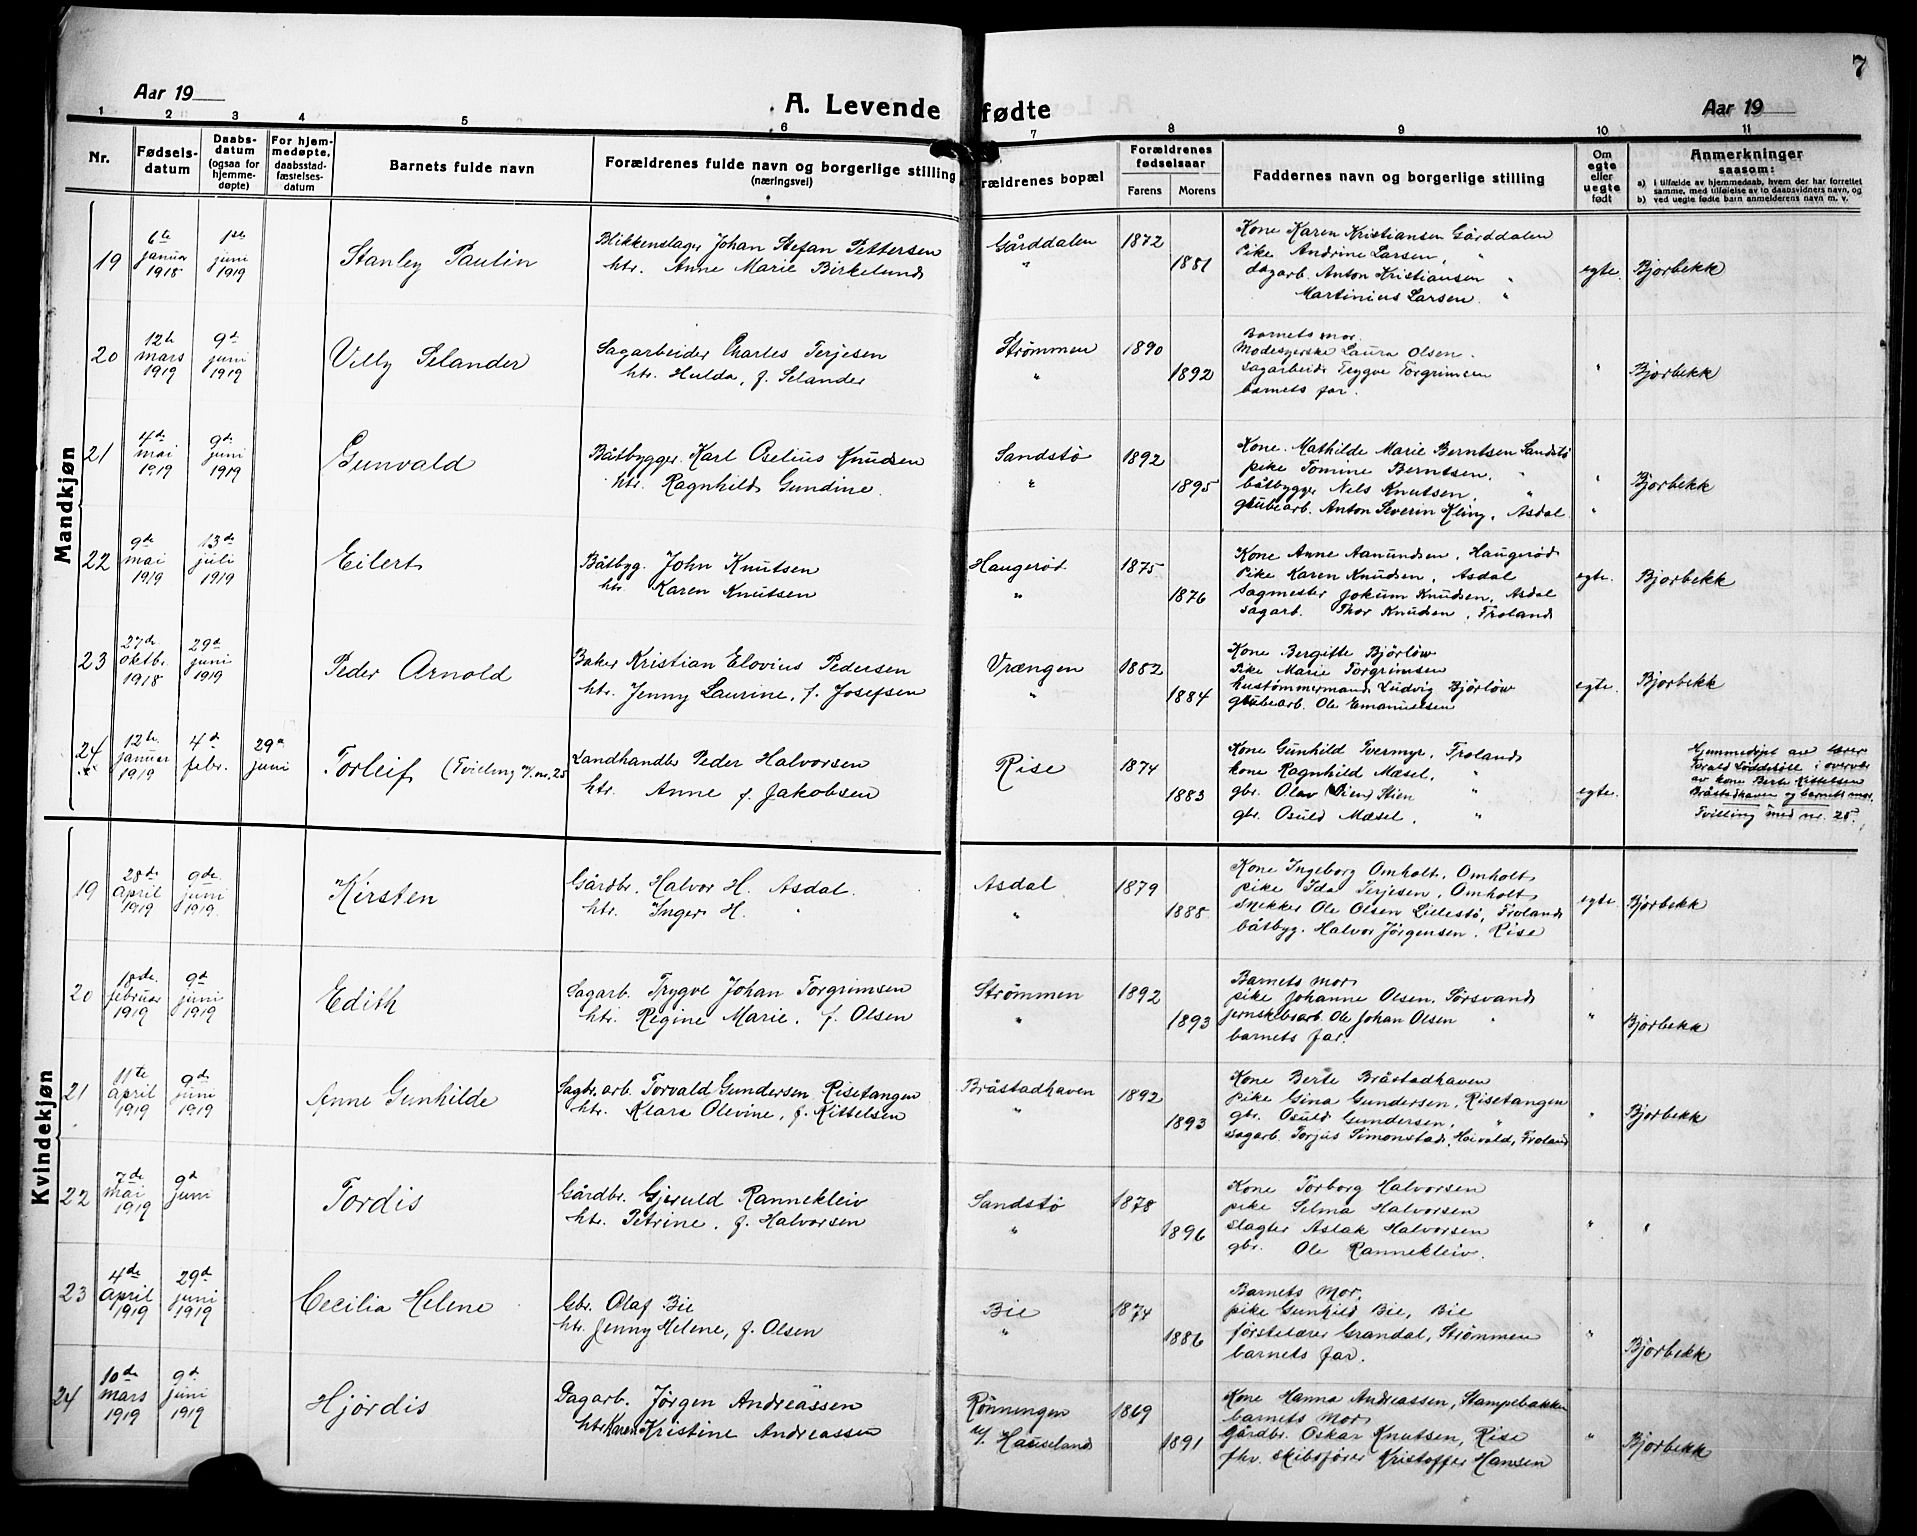 7
Aar 19
A. Levende fødte
Aar 19
1 2 3 4 5 6 7 8 9 10 11
Nr.
Fødsels-datum
Daabs-datum (ogsaa for hjemme-døpte)
For hjem-medøpte, daabsstad-fæstelses-datum
Barnets fulde navn
Forældrenes fulde navn og borgerlige stilling
(næringsvei)
Forældrenes bopæl
Forældrenes fødselsaar
Farens Morens
Faddernes navn og borgerlige stilling
Om egte eller uegte født
Anmerkninger
saasom:
a) i tilfælde av hjemmedaab, hvem der har forrettet
samme, med tilføielse av to daabsvidners navn, og
b) ved uegte fødte barn anmelderens navn m. v.
Mandkjøn
19 6te januar 1918 1ste juni 1919 Stanley Paulin
Blikkenslager Johan Stefan Pettersen
htr. Anne Marie Birkelund
Gårddalen " 1872 1881
Kone Karen Kristiansen Gårddalen
Pike Andrine Larsen, "
dagarb. Anton Kristiansen "
Martinius Larsen "
egte. Bjorbekk
20 12te mars 1919 9de juni 1919 Villy Selander
Sagarbeider Charles Terjesen
htr. Hulda, f. Selander
Strømmen " 1890 1892
Barnets mor.
Modesyerske Laura Olsen.
Sagarbeid. Trygve Torgrimsen
barnets far.
" Bjorbekk
21 4de mai 1919 9de juni 1919 Gunvald
Båtbygger Karl Oselius Knudsen
htr. Ragnhild Gundine.
Sandstø " 1892 1895
Kone Mathilde Marie Berntsen Sandstø
pike Tomine Berntsen, "
båtbygger Nels Knutsen, "
grubearb. Anton Severin Kling, Asdal
" Bjorbekk
22 9de mai 1919 13de juli 1919 Eilert
Båtbyg. John Knutsen
htr. Karen Knutsen
Haugerød " 1875 1876
Kone Anne Aanundsen, Haugerød
Pike Karen Knudsen, Asdal
Sagmester Jokum Knudsen, Asdal
Sagarb. Thor Knudsen, Froland
egte. Bjorbekk
23 27de oktb. 1918 29de juni 1919 Peder Arnold
Baker Kristian Elovius Pedersen
htr. Jenny Laurine, f. Josefsen
Vrængen " 1882 1884
Kone Bergitte Bjørløw
Pike Marie Torgrimsen
hustømmermand Ludvig Bjørløw
grubearb. Ole Emanuelsen
egte. Bjorbekk
24 12te januar 1919 4de febr. 29de juni Torleif (Tvilling m. nr. 25
Landhandler Peder Halvorsen
htr. Anne f. Jakobsen
Rise 1874 1883
Kone Gunhild Tvermyr, Froland
kone Ragnhild Mæsel, "
gbr. Olav Stien "
gbr. Osuld Mæsel, "
egte.
Hjemmedøpt av lærer
Torald Løddesøll i overvær
av kone Berte Kittelsen
Bråstadhaven og barnets mor.
Tvilling med nr. 25.
Kvindekjøn
19 28de April 1919 9de juni 1919. Kirsten
Gårdbr. Halvor H. Asdal.
htr. Inger H. "
Asdal " 1879 1888
Kone Ingeborg Omholt, Omholt
pike Ida Terjesen, Omholt
Snekker Ole Olsen Lillestø, Froland
båtbyg. Halvor Jørgensen, Rise
egte Bjorbekk
20 18de februar 1919 9de juni 1919 Edith
Sagarb. Trygve Johan Torgrimsen
htr. Regine Marie, f. Olsen
Strømmen " 1892 1893
Barnets mor
pike Johanne Olsen, Sørsvand
jernskibsarb Ole Johan Olsen "
barnets far.
" Bjorbekk
21 11te April 1919 9de juni 1919 Anne Gunhilde
Sagbr. arb. Torvald Gundersen, Risetangen
htr. Klara Olevine, f. Kittelsen
Bråstadhaven " 1892 1893
Kone Berte Bråstadhaven
pike Gina Gundersen, Risetangen
gbr. Osuld Gundersen, "
Sagarb. Torjus Simonstad, Heivold, Froland
" Bjorbekk
22 7de mai 1919 9de juni Tordis
Gårdbr. Gjeruld Rannekleiv
htr. Petrine, f. Halvorsen
Sandstø " 1878 1896
Kone Torborg Halvorsen
pike Selma Halvorsen
Slagter Aslak Halvorsen
gbr. Ole Rannekleiv.
" "
23 4de April 1919 29de juni 1919 Cecilia Helene
Gbr. Olaf Bie
htr. Jenny Helene, f. Olsen
Bie " 1874 1886
Barnets mor,
pike Gunhild Bie, Bie
førstelærer Grandal, Strømmen
barnets far.
" Bjorbekk
24 10de mars 1919 9de juni 1919 Hjørdis
Dagarb. Jørgen Andreassen
htr Karen Kristine Andreassen
Rønningen
u/. Hauseland 1869 1891
Kone Hanna Andreassen, Stampebakken
barnets mor
Gårdbr. Oskar Knutsen, Rise
fhv. skibsfører Kristoffer Hansen
" Bjorbekk